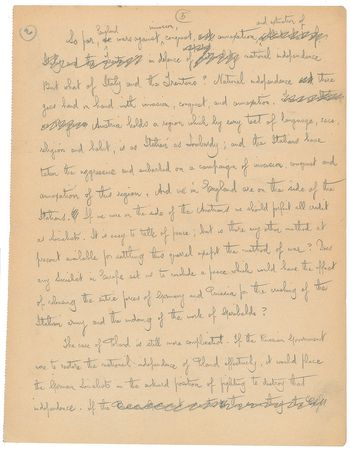 2
5
England invasion, and extinction of
So far, we were against conquest, annexation,
in defence of national independence
But what of Italy and the Trentino? National independence there
goes hand in hand with invasion, conquest, and annexation.
Austria holds a region which by every test of language, race,
religion and habit, is as Italian as Lombardy; and the Italians have
taken the aggressive and embarked on a campaign of invasion, conquest and
annexation of this region. And we in England are on the side of the
Italians. If we were on the side of the Austrians we should forfeit all credit
as Socialists. It is easy to talk of peace; but is there any other method at
present available for settling this quarrel except the method of war? Does
any Socialist in Europe ask us to conclude a peace which would have the effect
of releasing the entire forces of Germany and Austria for the crushing of the
Italian army and the undoing of the work of Garibaldi?
The case of Poland is still more complicated. If the Russian Government
were to restore the national independence of Poland effectively, it would place
the German Socialists in the awkward position of fighting to destroy that
independence. If the